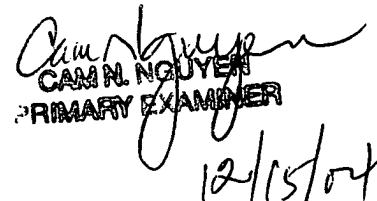 Cam N. Nguyen
CAM N. NGUYEN
PRIMARY EXAMINER
12/15/04